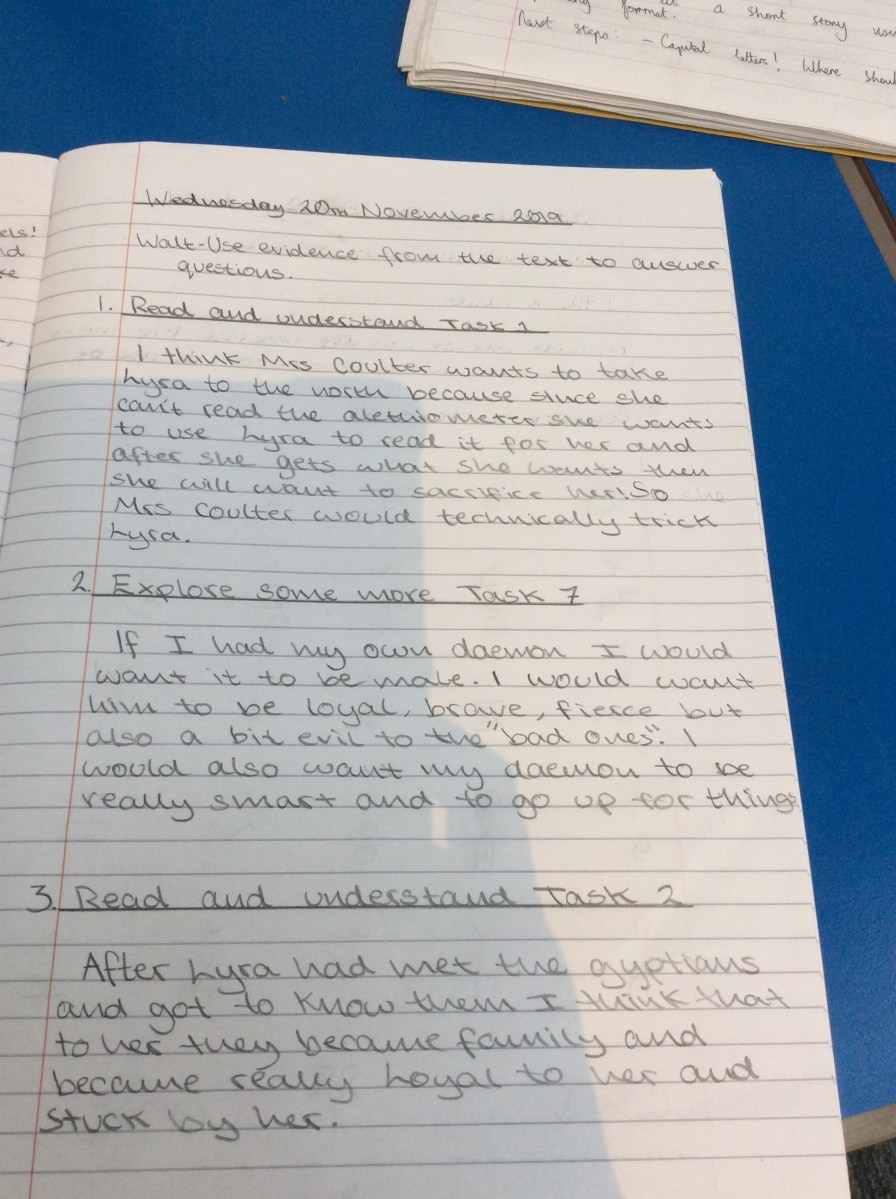 format. a short story
Next steps: - Capital letters! Where
els!
Wednesday 20th November 2019
Walt-Use evidence from the text to answer
questions.
1. Read and understand Task 1
I think Mrs Coulter wants to take
Lyra to the north because since she
can't read the alethiometer she wants
to use Lyra to read it for her and
after she gets what she wants then
she will want to sacrifice her! So
Mrs Coulter would technically trick
Lyra.
2. Explore some more Task 7
If I had my own daemon I would
want it to be male. I would want
him to be loyal, brave, fierce but
also a bit evil to the "bad ones". I
would also want my daemon to be
really smart and to go up for things
3. Read and understand Task 2
After Lyra had met the gyptians
and got to know them I think that
to her they became family and
became really loyal to her and
stuck by her.